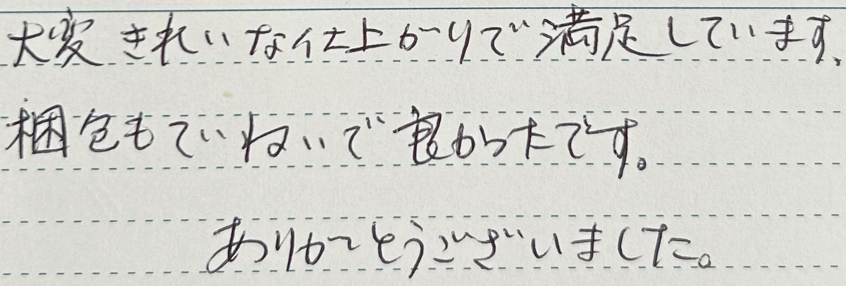 大変きれいな仕上がりで満足しています。
梱包もていねいで良かったです。
ありがとうございました。